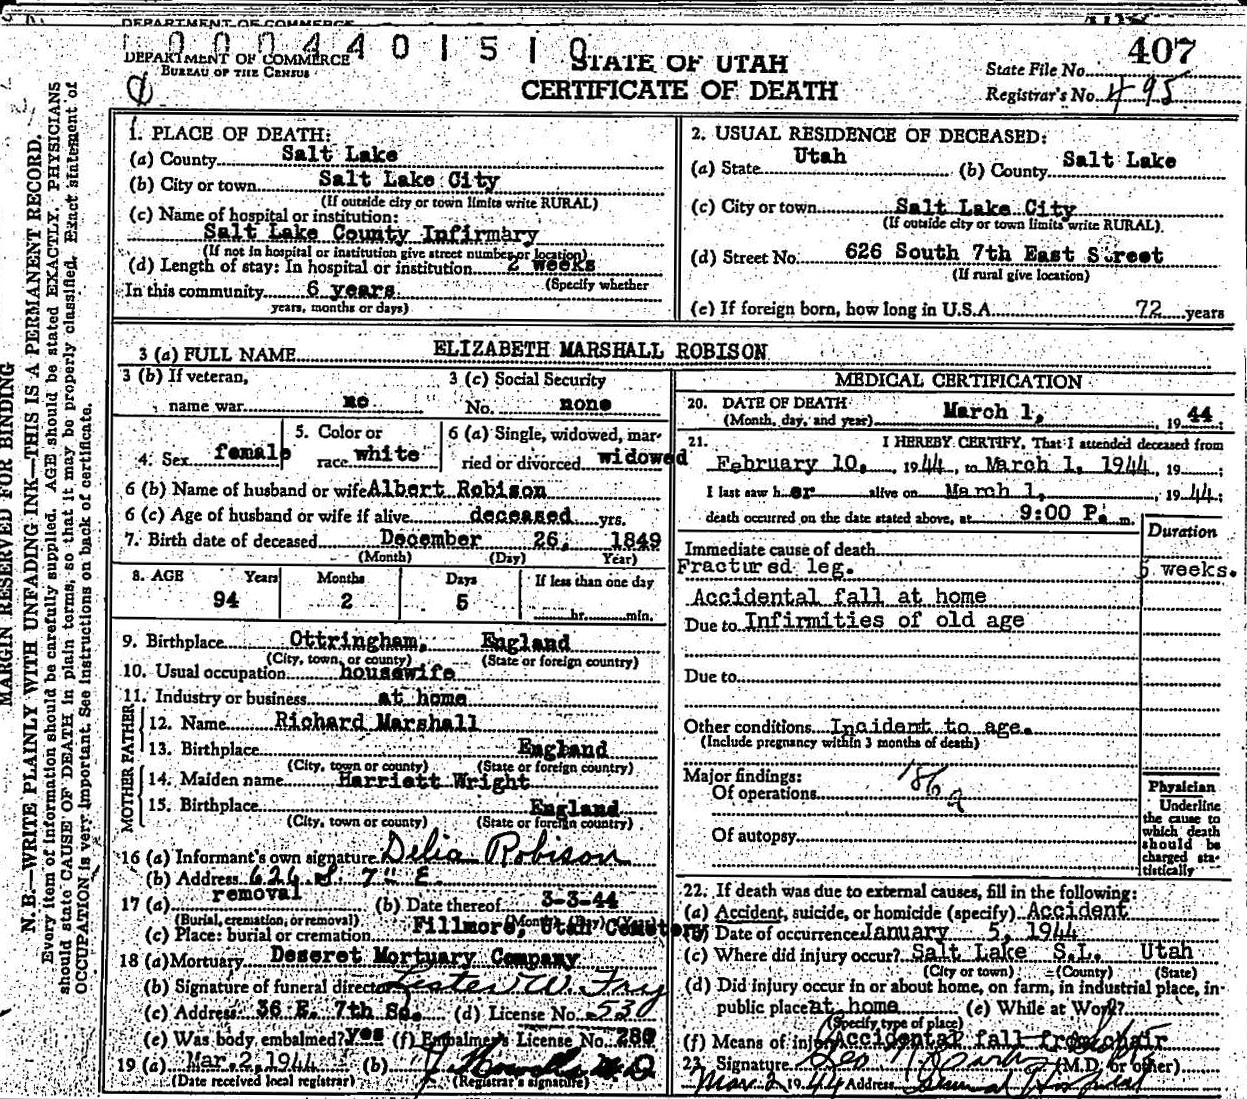 DEPARTMENT OF COMMERCE
0 0 0 4 4 0 1 5 1 0
407
DEPARTMENT OF COMMERCE
BUREAU OF THE CENSUS
STATE OF UTAH
CERTIFICATE OF DEATH
State File No.
Registrar's No. 495
MARGIN RESERVED FOR BINDING
N. B.—WRITE PLAINLY WITH UNFADING INK—THIS IS A PERMANENT RECORD.
Every item of information should be carefully supplied. AGE should be stated EXACTLY. PHYSICIANS
should state CAUSE OF DEATH in plain terms, so that it may be properly classified. Exact statement of
OCCUPATION is very important. See instructions on back of certificate.
1. PLACE OF DEATH:
(a) County Salt Lake
(b) City or town Salt Lake City
(If outside city or town limits write RURAL)
(c) Name of hospital or institution:
Salt Lake County Infirmary
(If not in hospital or institution give street number or location)
(d) Length of stay: In hospital or institution 2 weeks
(Specify whether
In this community 6 years
years, months or days)
2. USUAL RESIDENCE OF DECEASED:
(a) State Utah (b) County Salt Lake
(c) City or town Salt Lake City
(If outside city or town limits write RURAL)
(d) Street No. 626 South 7th East Street
(If rural give location)
(e) If foreign born, how long in U.S.A. 72 years
3 (a) FULL NAME ELIZABETH MARSHALL ROBISON
3 (b) If veteran, 3 (c) Social Security
name war no No. none
4. Sex female 5. Color or race white 6 (a) Single, widowed, married or divorced widowed
6 (b) Name of husband or wife Albert Robison
6 (c) Age of husband or wife if alive deceased yrs.
7. Birth date of deceased December 26, 1849
(Month) (Day) Year)
8. AGE Years Months Days If less than one day
94 2 5 hr. min.
9. Birthplace Ottringham, England
(City, town, or county) (State or foreign country)
10. Usual occupation housewife
11. Industry or business at home
FATHER
12. Name Richard Marshall
13. Birthplace England
(City, town or county) (State or foreign country)
MOTHER
14. Maiden name Harriett Wright
15. Birthplace England
(City, town or county) (State or foreign country)
16 (a) Informant's own signature Delia Robison
(b) Address 626 S. 7" E.
17 (a) removal (b) Date thereof 3-3-44
(Burial, cremation, or removal) (Month) (Day) (Year)
(c) Place: burial or cremation Fillmore, Utah Cemetery
18 (a) Mortuary Deseret Mortuary Company
(b) Signature of funeral director Lester W. Fry
(c) Address 36 E. 7th So. (d) License No. 530
(e) Was body embalmed? yes (f) Embalmer's License No. 280
19 (a) Mar. 2, 1944 (b) M D
(Date received local registrar) (Registrar's signature)
MEDICAL CERTIFICATION
20. DATE OF DEATH
(Month, day, and year) March 1, 19 44
21. I HEREBY CERTIFY, That I attended deceased from
February 10, 1944, to March 1, 1944, 19 ;
I last saw her alive on March 1, 19 44;
death occurred on the date stated above, at 9:00 P. m.
Duration
Immediate cause of death
Fractured leg. 5 weeks.
Accidental fall at home
Due to Infirmities of old age
Due to
Other conditions Incident to age.
(Include pregnancy within 3 months of death)
Major findings:
Of operations 186 a
Of autopsy
Physician
Underline
the cause to
which death
should be
charged sta-
tistically
22. If death was due to external causes, fill in the following:
(a) Accident, suicide, or homicide (specify) Accident
(b) Date of occurrence January 5, 1944
(c) Where did injury occur? Salt Lake S.L. Utah
(City or town) (County) (State)
(d) Did injury occur in or about home, on farm, in industrial place, in
public place at home (e) While at Work?
(Specify type of place)
(f) Means of injury Accidental fall from chair
23. Signature (M.D. or other)
Mar 2 19 44 Address General Hospital